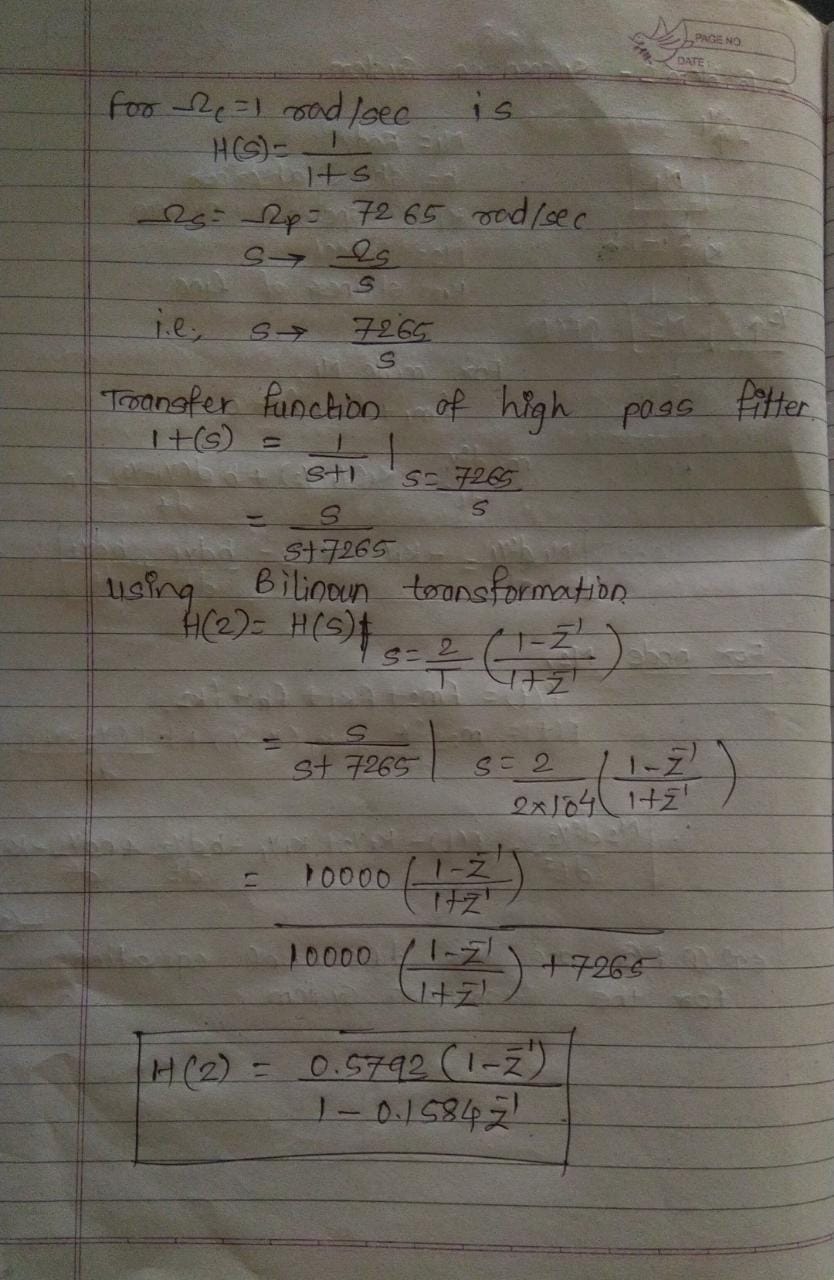 PAGE NO
DATE:
for Ωc=1 rad/sec is
H(S)= 1/(1+s)
Ωs= Ωp= 7265 rad/sec
S→ Ωs/s
i.e; s→ 7265/s
Transfer function of high pass filter.
1+(s) = 1/(s+1) | s= 7265/s
= s/(s+7265)
using Bilinoun transformation
H(2)= H(S)| s= 2/T ((1-z̄¹)/(1+z̄¹))
= s/(s+7265) | s= 2/(2×10⁻⁴) ((1-z̄¹)/(1+z̄¹))
= 10000 ((1-z̄¹)/(1+z̄¹)) / (10000 ((1-z̄¹)/(1+z̄¹)) + 7265)
H(2) = 0.5792 (1-z̄¹) / (1-0.1584z̄¹)